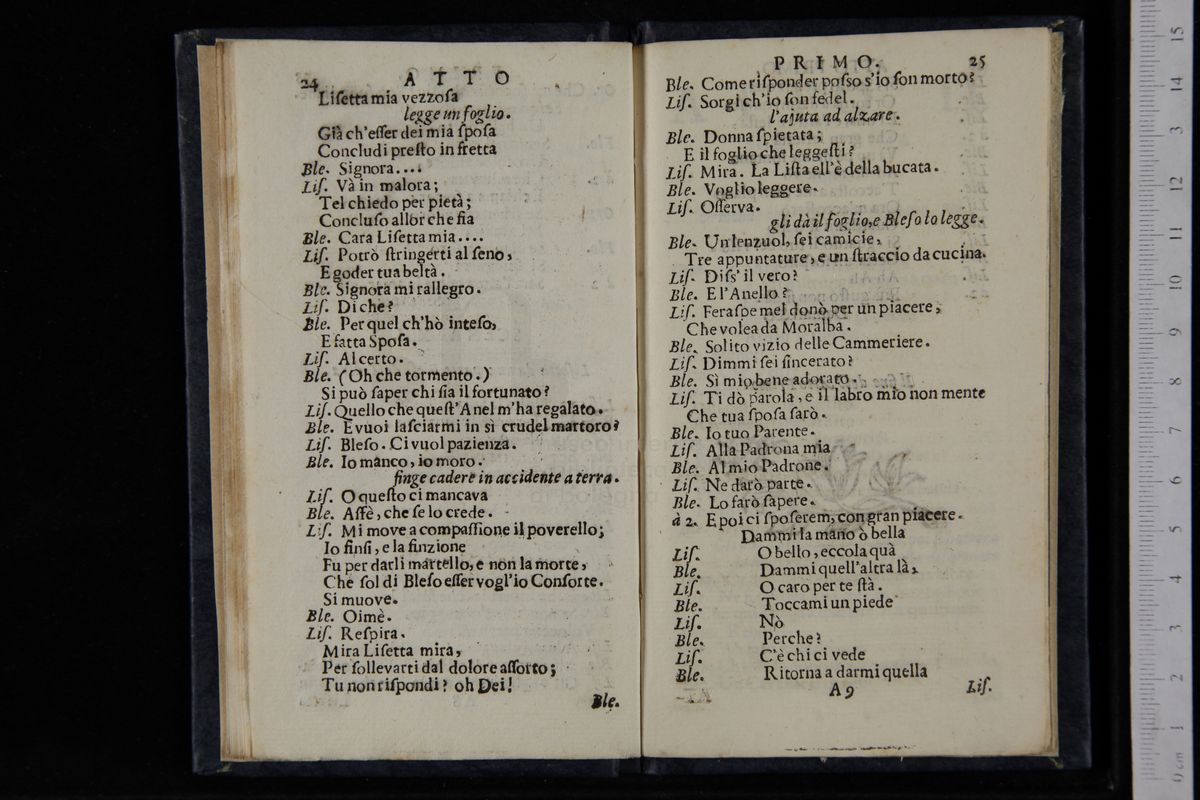 24 ATTO
Liſetta mia vezzoſa
legge un foglio.
Già ch'eſſer dei mia ſpoſa
Concludi preſto in fretta
Ble. Signora....
Liſ. Và in malora;
Tel chiedo per pietà;
Concluſo allor che ſia
Ble. Cara Liſetta mia....
Liſ. Potrò ſtringerti al ſeno,
E goder tua beltà.
Ble. Signora mi rallegro.
Liſ. Di che?
Ble. Per quel ch'hò inteſo,
E fatta Spoſa.
Liſ. Al certo.
Ble. (Oh che tormento.)
Si può ſaper chi ſia il fortunato?
Liſ. Quello che queſt'Anel m'ha regalato.
Ble. E vuoi laſciarmi in sì crudel martoro?
Liſ. Bleſo. Ci vuol pazienza.
Ble. Io manco, io moro.
finge cadere in accidente a terra.
Liſ. O queſto ci mancava
Ble. Affè, che ſe lo crede.
Liſ. Mi move a compaſſione il poverello;
Io finſi, e la finzione
Fu per darli martello, e non la morte,
Che ſol di Bleſo eſſer vogl'io Conſorte.
Si muove.
Ble. Oimè.
Liſ. Reſpira.
Mira Liſetta mira,
Per ſollevarti dal dolore aſſorto;
Tu non riſpondi? oh Dei!
Ble.
PRIMO. 25
Ble. Come riſponder poſso s'io ſon morto?
Liſ. Sorgi ch'io ſon fedel.
l'ajuta ad alzare.
Ble. Donna ſpietata;
E il foglio che leggeſti?
Liſ. Mira. La Liſta ell'è della bucata.
Ble. Voglio leggere.
Liſ. Oſſerva.
gli dà il foglio, e Bleſo lo legge.
Ble. Un lenzuol, ſei camicie,
Tre appuntature, e un ſtraccio da cucina.
Liſ. Diſs' il vero?
Ble. E l'Anello?
Liſ. Feraſpe mel donò per un piacere,
Che volea da Moralba.
Ble. Solito vizio delle Cammeriere.
Liſ. Dimmi ſei ſincerato?
Ble. Sì mio bene adorato.
Liſ. Ti dò parola, e il labro mio non mente
Che tua ſpoſa ſarò.
Ble. Io tuo Parente.
Liſ. Alla Padrona mia
Ble. Al mio Padrone.
Liſ. Ne darò parte.
Ble. Lo farò ſapere.
à 2. E poi ci ſpoſerem, con gran piacere.
Dammi la mano ò bella
Liſ. O bello, eccola quà
Ble. Dammi quell'altra là,
Liſ. O caro per te ſtà.
Ble. Toccami un piede
Liſ. Nò
Ble. Perche?
Liſ. C'è chi ci vede
Ble. Ritorna a darmi quella
A 9 Liſ.